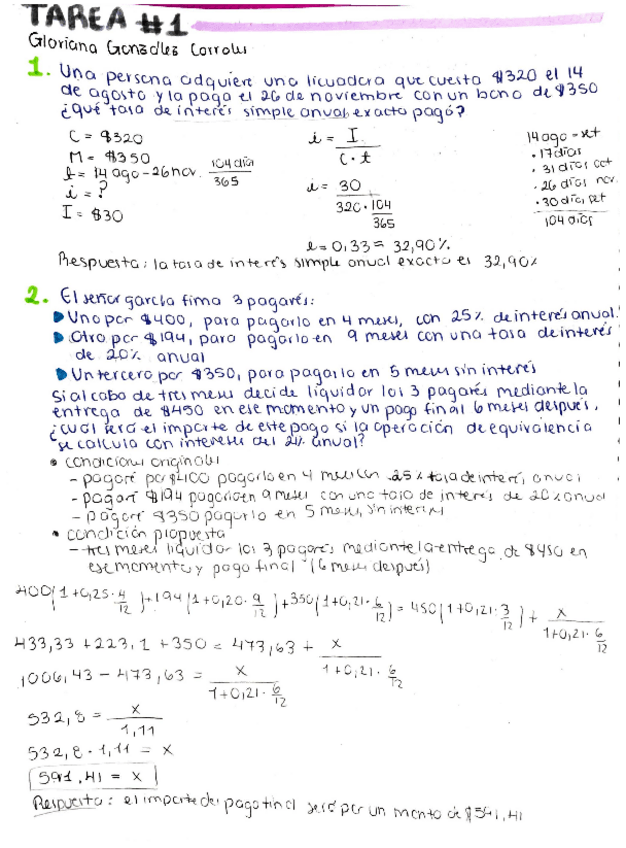 TAREA #1
Gloriana González Corrales
1. Una persona adquiere una licuadora que cuesta $320 el 14
de agosto y la paga el 26 de noviembre con un bono de $350
¿qué tasa de interés simple anual exacta pagó?
C = $320
M = $350
t = 14 ago - 26 nov. 104 días/365
i = ?
I = $30
i = I/(C · t)
i = 30/(320 · 104/365)
i = 0,33 = 32,90%
14 ago - set
· 17 días
· 31 días oct
· 26 días nov.
· 30 días set
104 días
Respuesta: la tasa de interés simple anual exacta es 32,90%
2. El señor garcía firma 3 pagarés:
Uno por $400, para pagarlo en 4 meses, con 25% de interés anual.
Otro por $194, para pagarlo en 9 meses con una tasa de interés
de 20% anual
Un tercero por $350, para pagarlo en 5 meses sin interés
Si al cabo de tres meses decide liquidar los 3 pagarés mediante la
entrega de $450 en ese momento y un pago final 6 meses después,
¿cuál será el importe de este pago si la operación de equivalencia
se calcula con intereses del 21% anual?
• condiciones originales
- pagaré por $400 pagarlo en 4 meses con 25% tasa de interés anual
- pagaré $194 pagarlo en 9 meses con una tasa de interés de 20% anual
- pagaré $350 pagarlo en 5 meses, sin interés
• condición propuesta
- tres meses liquidar los 3 pagarés mediante la entrega de $450 en
ese momento y pago final (6 meses después)
400(1+0,25·4/12)+194(1+0,20·9/12)+350(1+0,21·6/12) = 450(1+0,21·3/12) + x/(1+0,21·6/12)
433,33 + 223,1 + 350 = 473,63 + x/(1+0,21·6/12)
1006,43 - 473,63 = x/(1+0,21·6/12)
532,8 = x/1,11
532,8 · 1,11 = x
591,41 = x
Respuesta: el importe del pago final será por un monto de $591,41